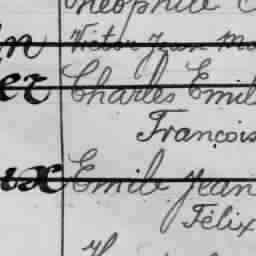 Théophile
Victor Jean
er Charles Emil
François
ux Emile Jean
Félix